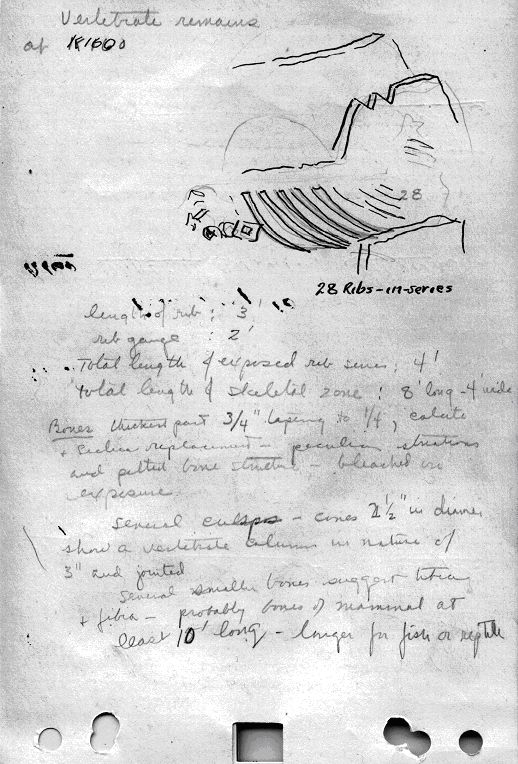 Vertebrate remains
at 181600
28
28 Ribs-in-series
length of rib: 3'
rib gauge : 2'
Total length of exposed rib series: 4'
Total length of skeletal zone : 8' long - 4' wide
Bones thickest part 3/4" taping to 1/4, calcite
+ silica replacement - peculiar striations
and pitted bone structure - bleached on
exposure.
Several - cones 1½" in diame
show a vertebrate column in nature of
3" and jointed
Several smaller bones suggest tibia
+ fibia - probably bones of mammal at
least 10' long - longer for fish or reptile